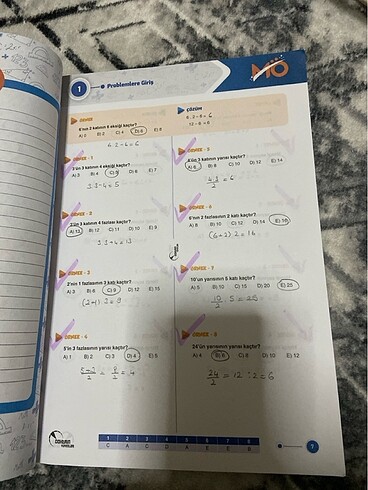 1
Problemlere Giriş
MO
ÖRNEK
6'nın 2 katının 6 eksiği kaçtır?
A) 0 B) 2 C) 4 D) 6 E) 8
ÇÖZÜM
6 . 2 - 6 = 6
12 - 6 = 6
ÖRNEK - 1
3'ün 3 katının 4 eksiği kaçtır?
A) 3 B) 4 C) 5 D) 6 E) 7
3.3-4=5
ÖRNEK - 2
3'ün 3 katının 4 fazlası kaçtır?
A) 13 B) 12 C) 11 D) 10 E) 9
3.3+4=13
ÖRNEK - 3
2'nin 1 fazlasının 3 katı kaçtır?
A) 3 B) 6 C) 9 D) 12 E) 15
(2+1).3=9
ÖRNEK - 4
5'in 3 fazlasının yarısı kaçtır?
A) 1 B) 2 C) 3 D) 4 E) 5
5+3/2 = 8/2 = 4
ÖRNEK - 5
4'ün 3 katının yarısı kaçtır?
A) 6 B) 8 C) 10 D) 12 E) 14
4.3/2 = 6
ÖRNEK - 6
6'nın 2 fazlasının 2 katı kaçtır?
A) 8 B) 10 C) 12 D) 14 E) 16
(6+2).2=16
ÖRNEK - 7
10'un yarısının 5 katı kaçtır?
A) 5 B) 10 C) 15 D) 20 E) 25
10/2 5 = 25
ÖRNEK - 8
24'ün yarısının yarısı kaçtır?
A) 4 B) 6 C) 8 D) 10 E) 12
24/2 = 12 ÷ 2 = 6
1 2 3 4 5 6 7 8
C A C D A E E B
7